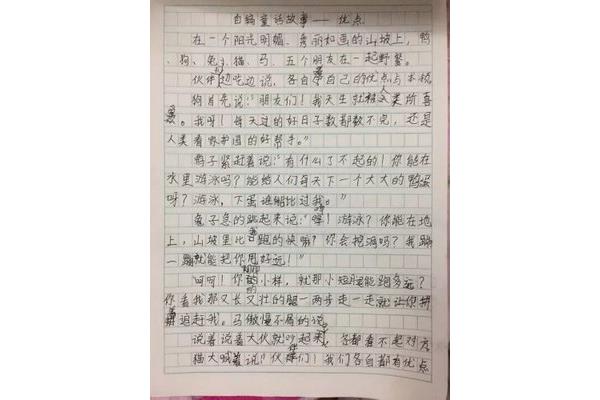 自编童话故事——优点
在一个阳光明媚、秀丽和画的山坡上，鸭
、狗、兔、猫、马、五个朋友在一起野餐。
伙伴边吃边说，各自夸自己的优点与本
狗首先说："朋友们！我天生就被人类所喜
爱。我呀！每天过的好日子数都数不完，还是
人类看家护园的好帮手。"
鸭子紧赶着说："有什么了不起的！你能在
水里游泳吗？能给人们每天下一个大大的鸭蛋
呀？游泳，下蛋谁能比过我。"
兔子急的跳起来说："哼！游泳？你能在地
上，山坡里比跑的快嘛？你会挖洞吗？我蹦
一蹦就能把你甩好远！"
呵呵！你的小样，就那小短腿能跑多远？
你看我那又长又壮的腿一两步走一走就让你拼
拼追赶我。马傲慢不屑的说
说着说着大伙就吵起来，各都看不起对方
猫大喊着说："伙伴们！我们各自都有优点